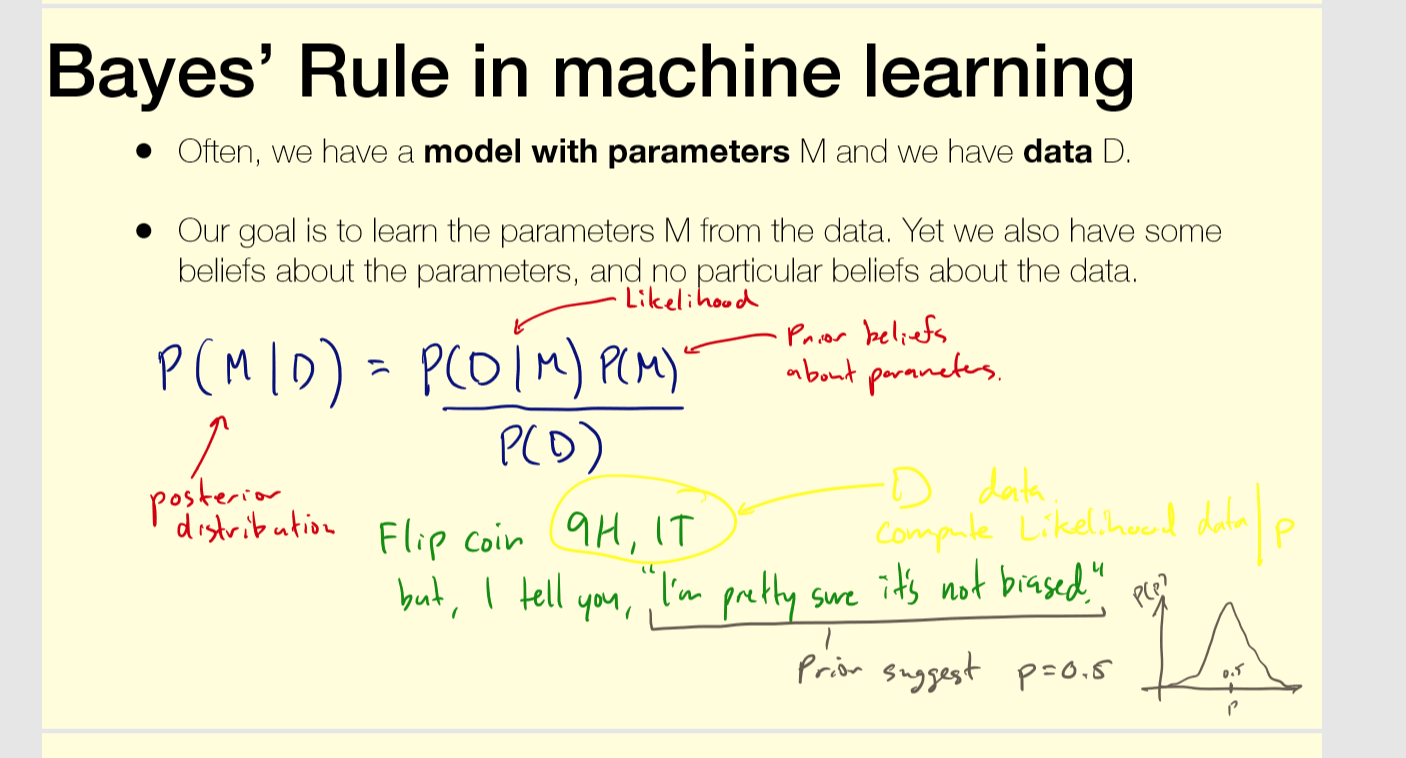 Bayes' Rule in machine learning
• Often, we have a model with parameters M and we have data D.
• Our goal is to learn the parameters M from the data. Yet we also have some
beliefs about the parameters, and no particular beliefs about the data.
Likelihood
Prior beliefs
about parameters.
P(M|D) = P(D|M) P(M)
P(D)
posterior
distribution
D data
compute Likelihood data|p
Flip coin 9H, 1T
but, I tell you, "I'm pretty sure it's not biased."
P(p)
Prior suggest p=0.5
0.5
p